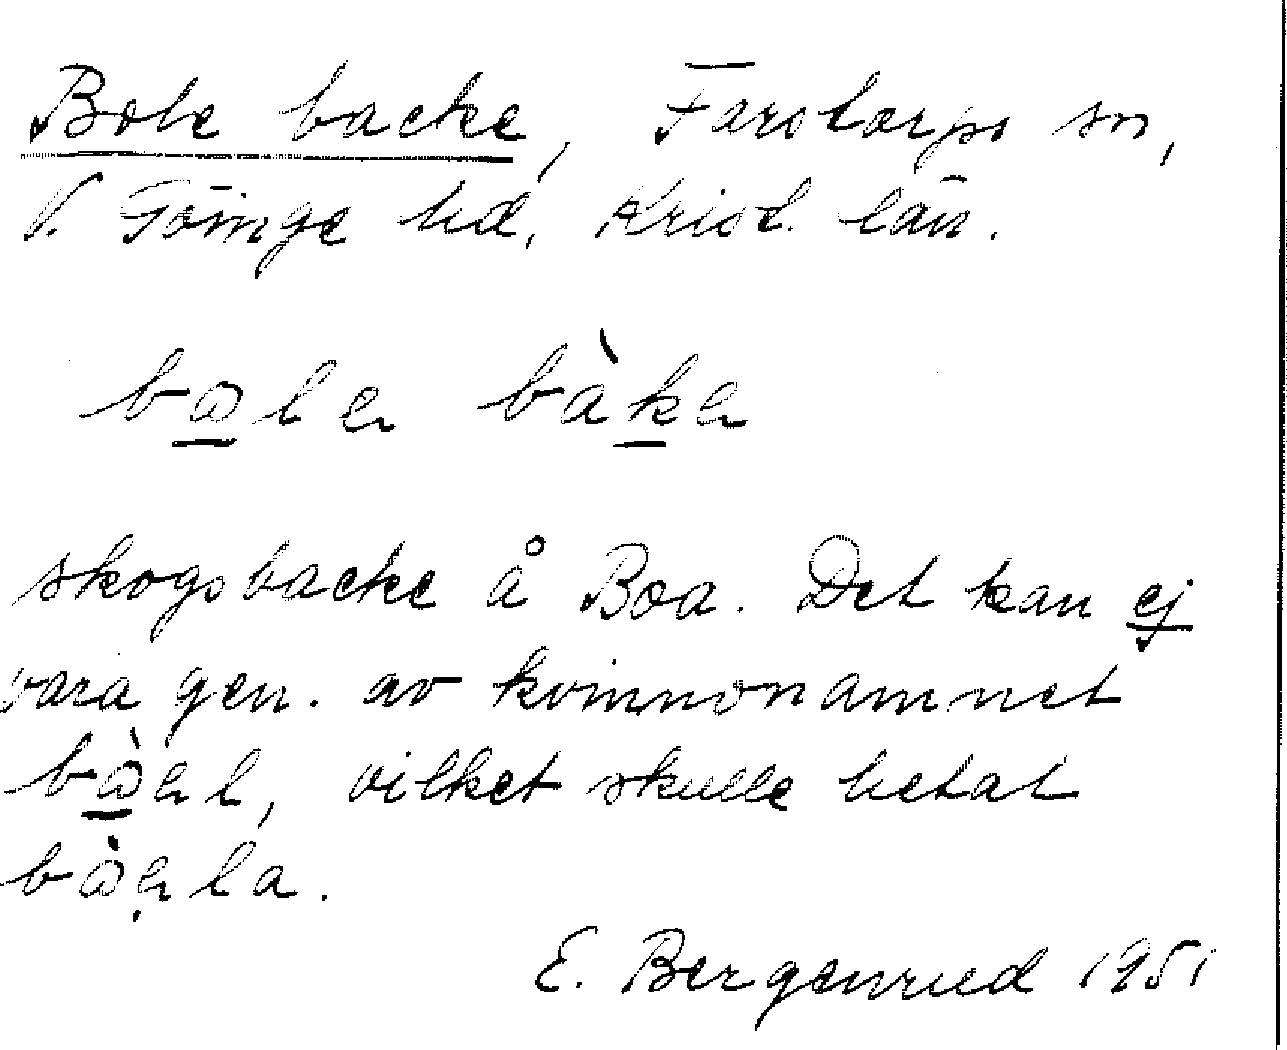 Bole backe, Färstorps sn,
V. Göinge hd, Krist. län.
skogsbacke å Boa. Det kan ej
vara gen. av kvinnonamnet
vilket skulle hetat
E. Bergenrud 1951